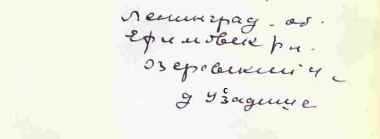 Ленинград. об.
Ефимовск рн.
Озеровский с
д Узадице